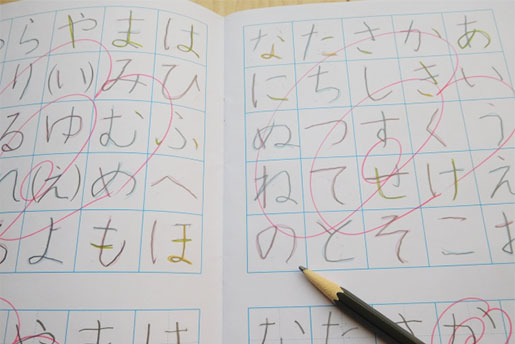 あいうえ
かきくけこ
さしすせそ
たちつてと
なにぬねの
はひふへほ
まみむめも
や(い)ゆ(え)よ
らりるれ
か
さ
た
な
は
ま